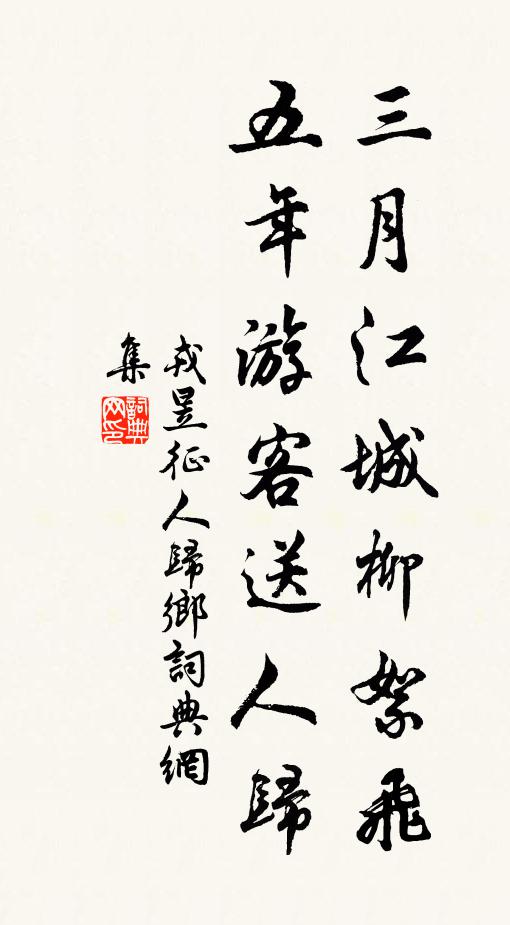 三月江城柳絮飛
五年游客送人歸
戎昱征人歸鄉詞典網
集
詞典網印